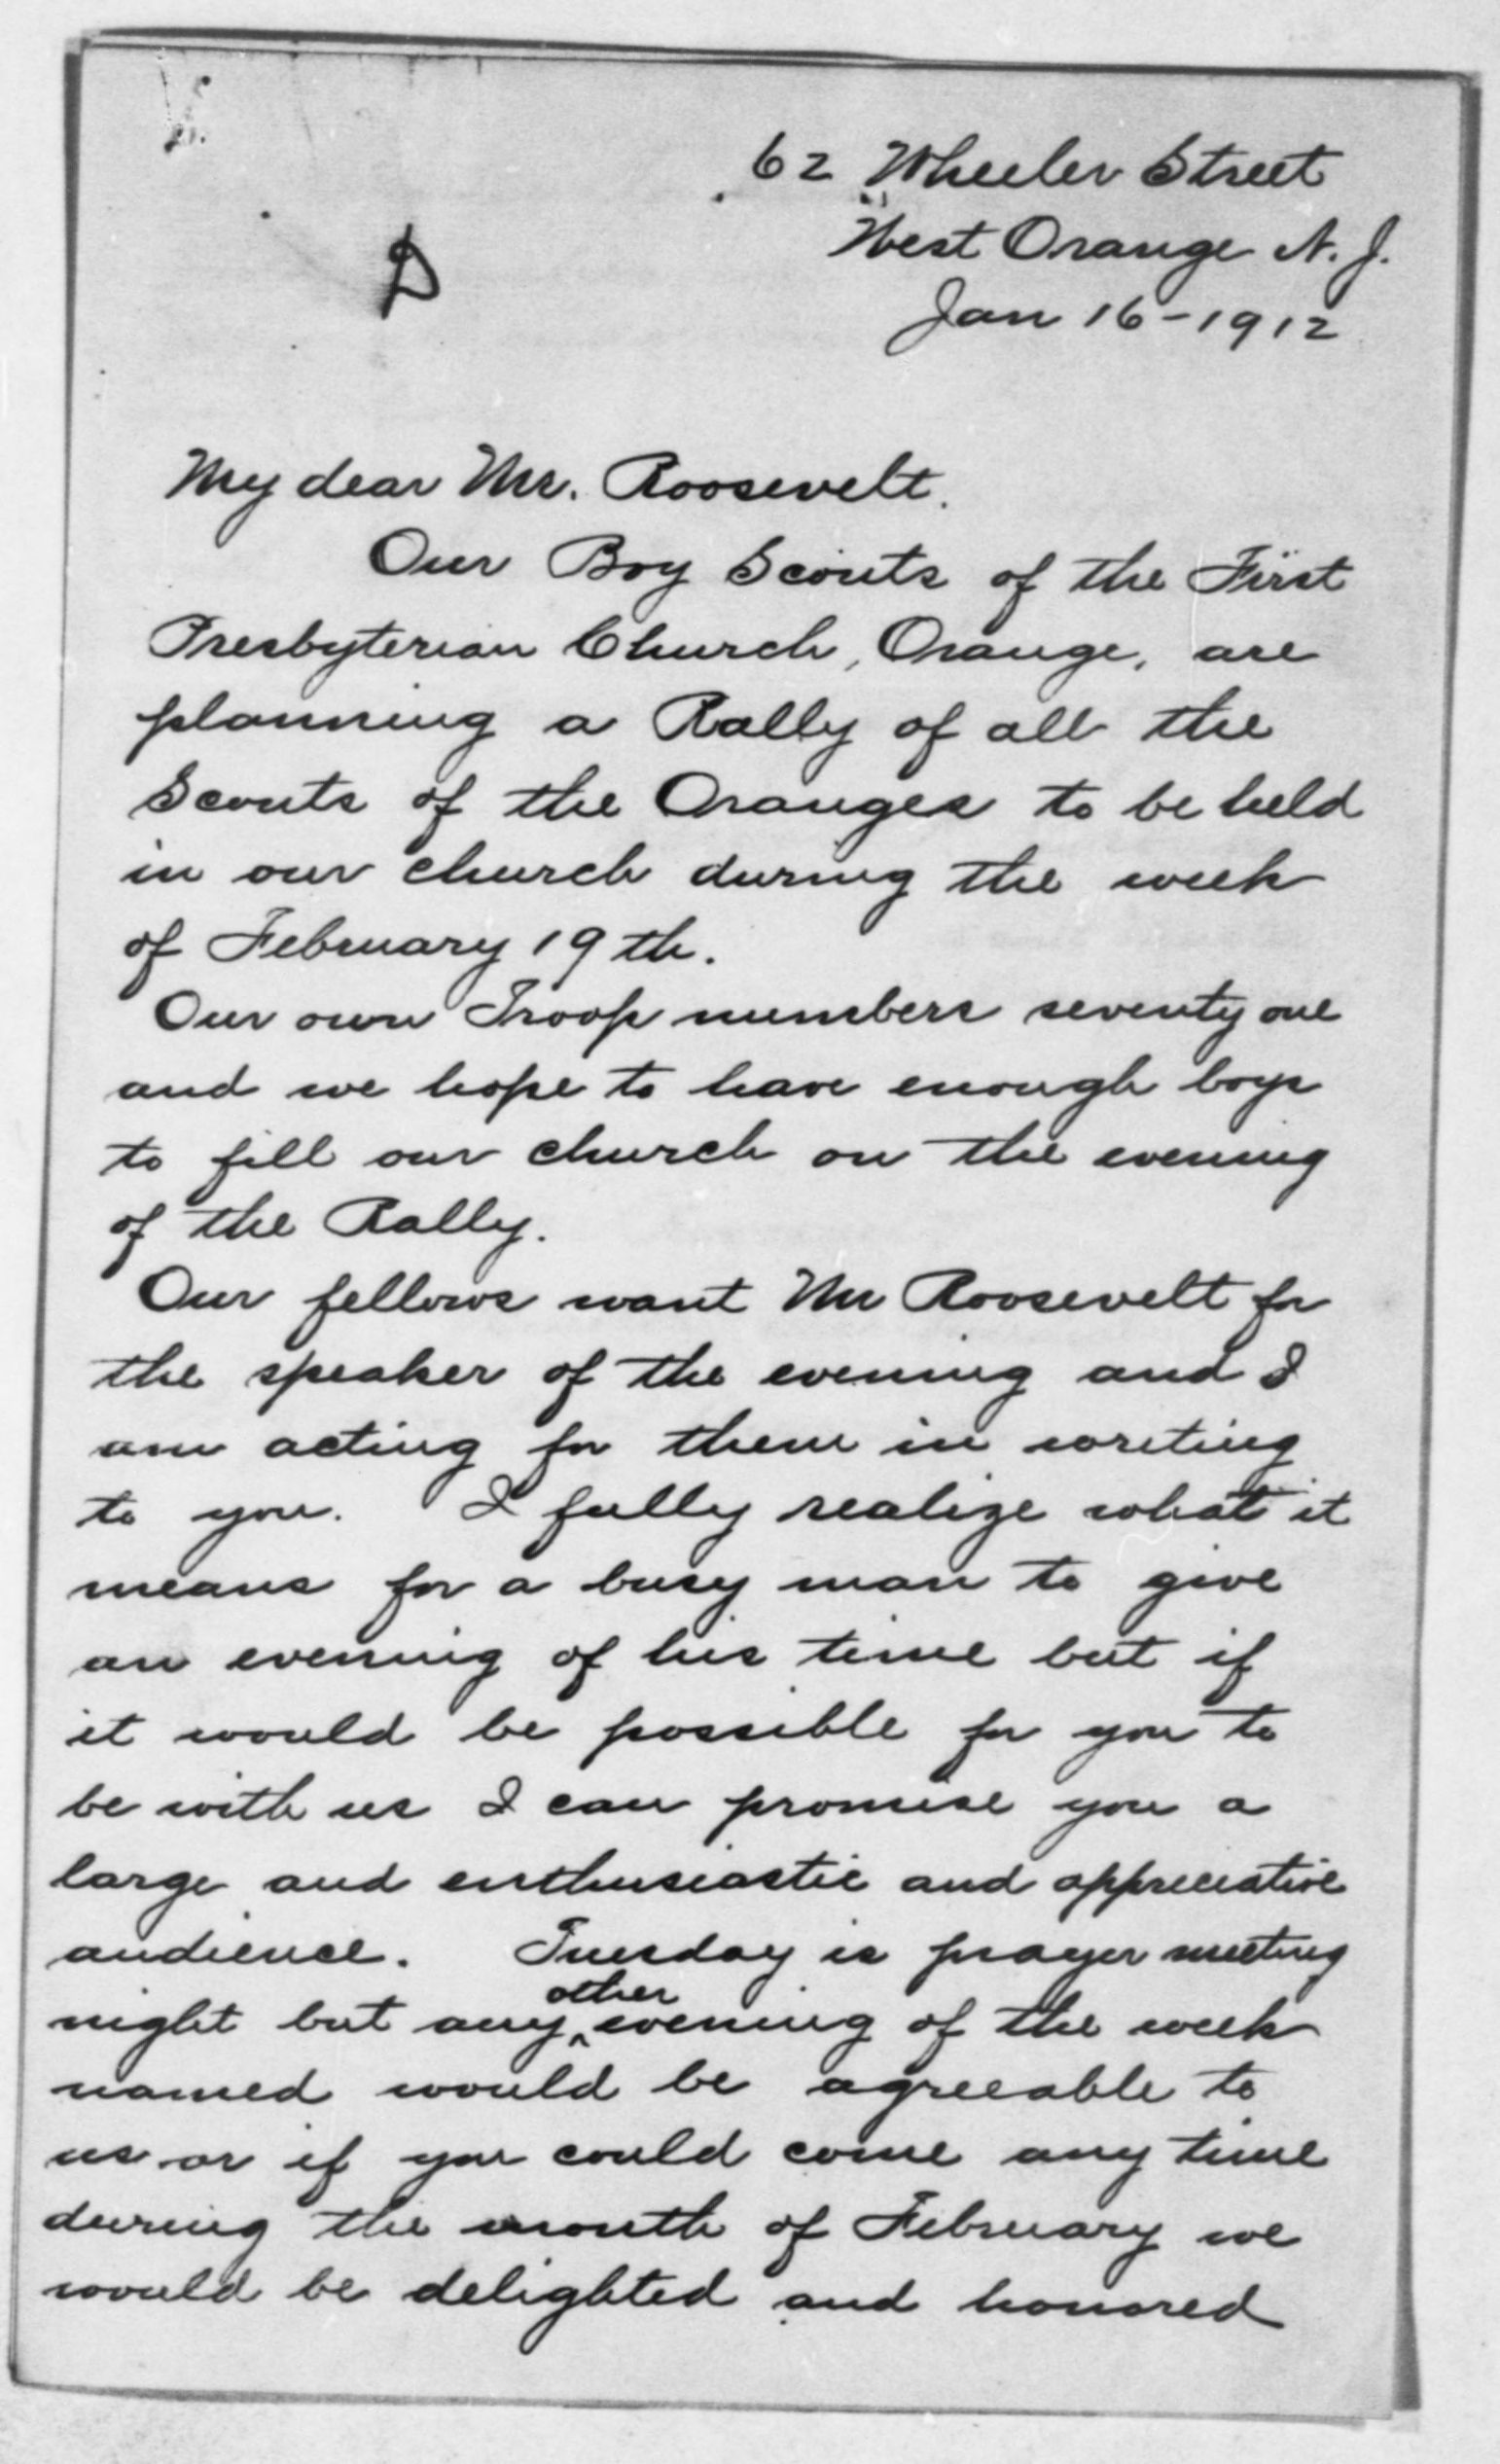 62 Wheeler Street
West Orange N. J.
D
Jan 16-1912
My dear Mr. Roosevelt.
Our Boy Scouts of the First
Presbyterian Church, Orange, are
planning a Rally of all the
Scouts of the Oranges to be held
in our church during the week
of February 19th.
Our own Troop numbers seventy one
and we hope to have enough boys
to fill our church on the evening
of the Rally.
Our fellows want Mr Roosevelt for
the speaker of the evening and I
am acting for them in writing
to you. I fully realize what it
means for a busy man to give
an evening of his time but if
it would be possible for you to
be with us I can promise you a
large and enthusiastic and appreciative
audience. Tuesday is prayer meeting
other
night but any ^ evening of the week
named would be agreeable to
us or if you could come any time
during the month of February we
would be delighted and honored